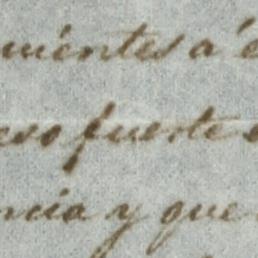 uientes á é
eso fuerte
ncia y que